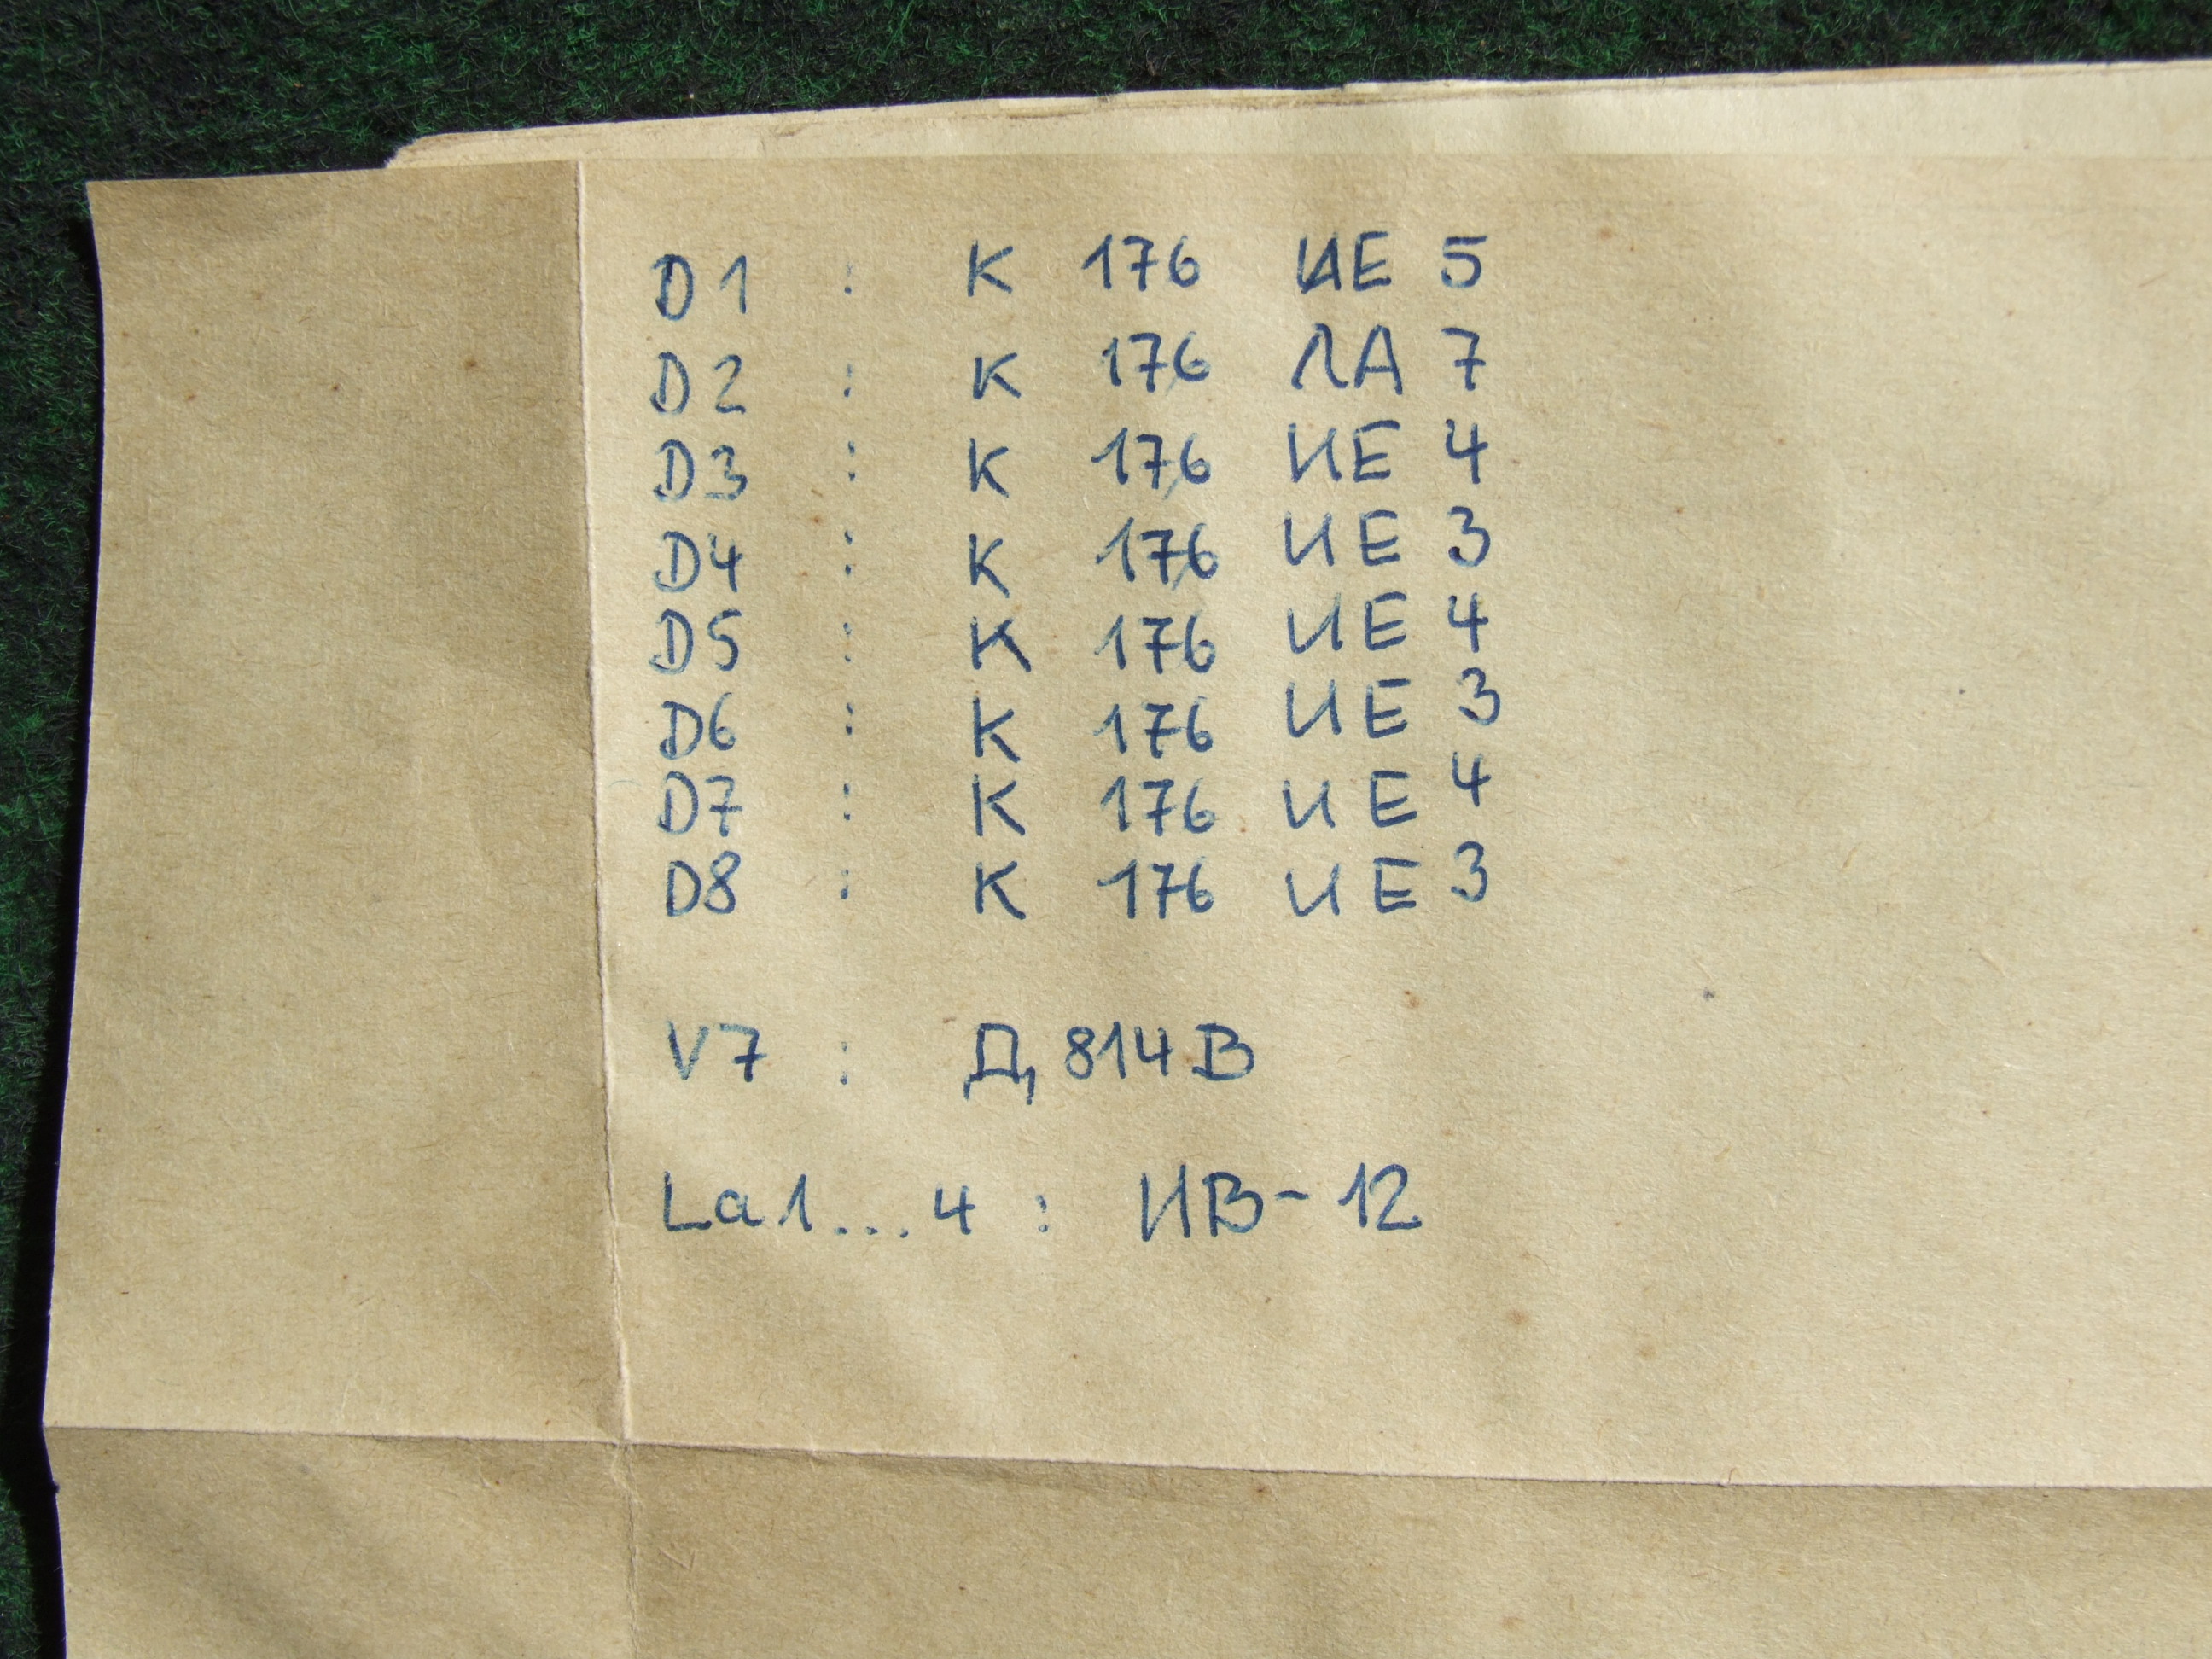 D1 : К 176 ИЕ 5
D2 : К 176 ЛА 7
D3 : К 176 ИЕ 4
D4 : К 176 ИЕ 3
D5 : К 176 ИЕ 4
D6 : К 176 ИЕ 3
D7 : К 176 ИЕ 4
D8 : К 176 ИЕ 3
V7 : Д 814 В
La1...4 : ИВ-12